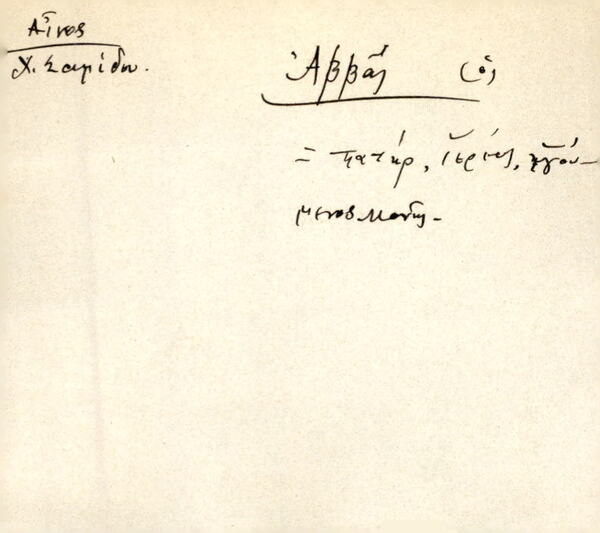 Αἶνος
Χ. Σαμίδου.
Ἀββᾶς (ὁ)
= πατήρ, ἱερεύς, ἡγού-
μενος Μονῆς.